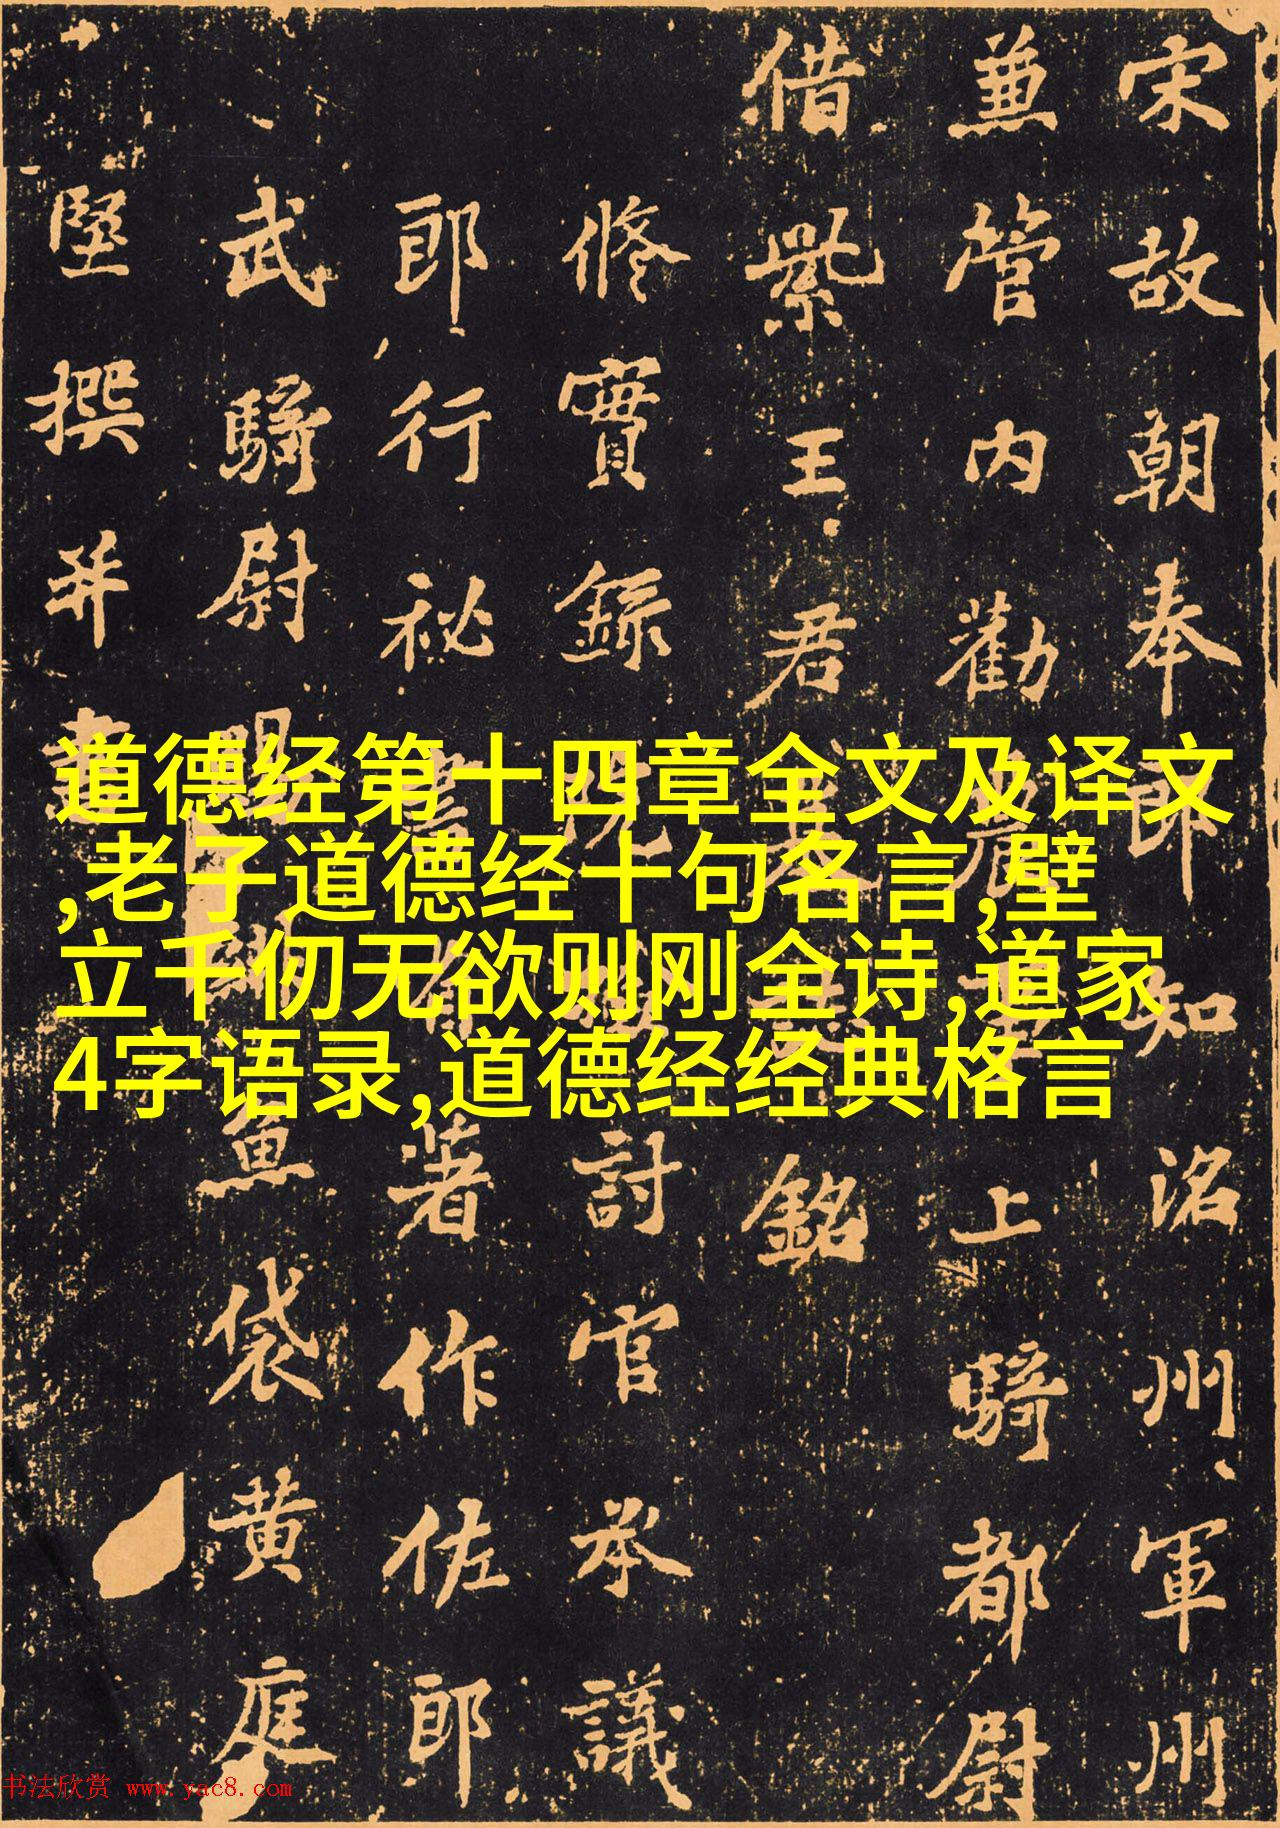 宋故朝奉郎知洺州軍州
兼管内勸農事上騎都尉
借紫王君銘
修實錄院檢討官承議
郎行秘書省著作佐郎
武騎尉賜緋魚袋黄庭
堅撰并書
道德经第十四章全文及译文
,老子道德经十句名言,壁
立千仞无欲则刚全诗,道家
4字语录,道德经经典格言
书法欣赏 www.yac8.com